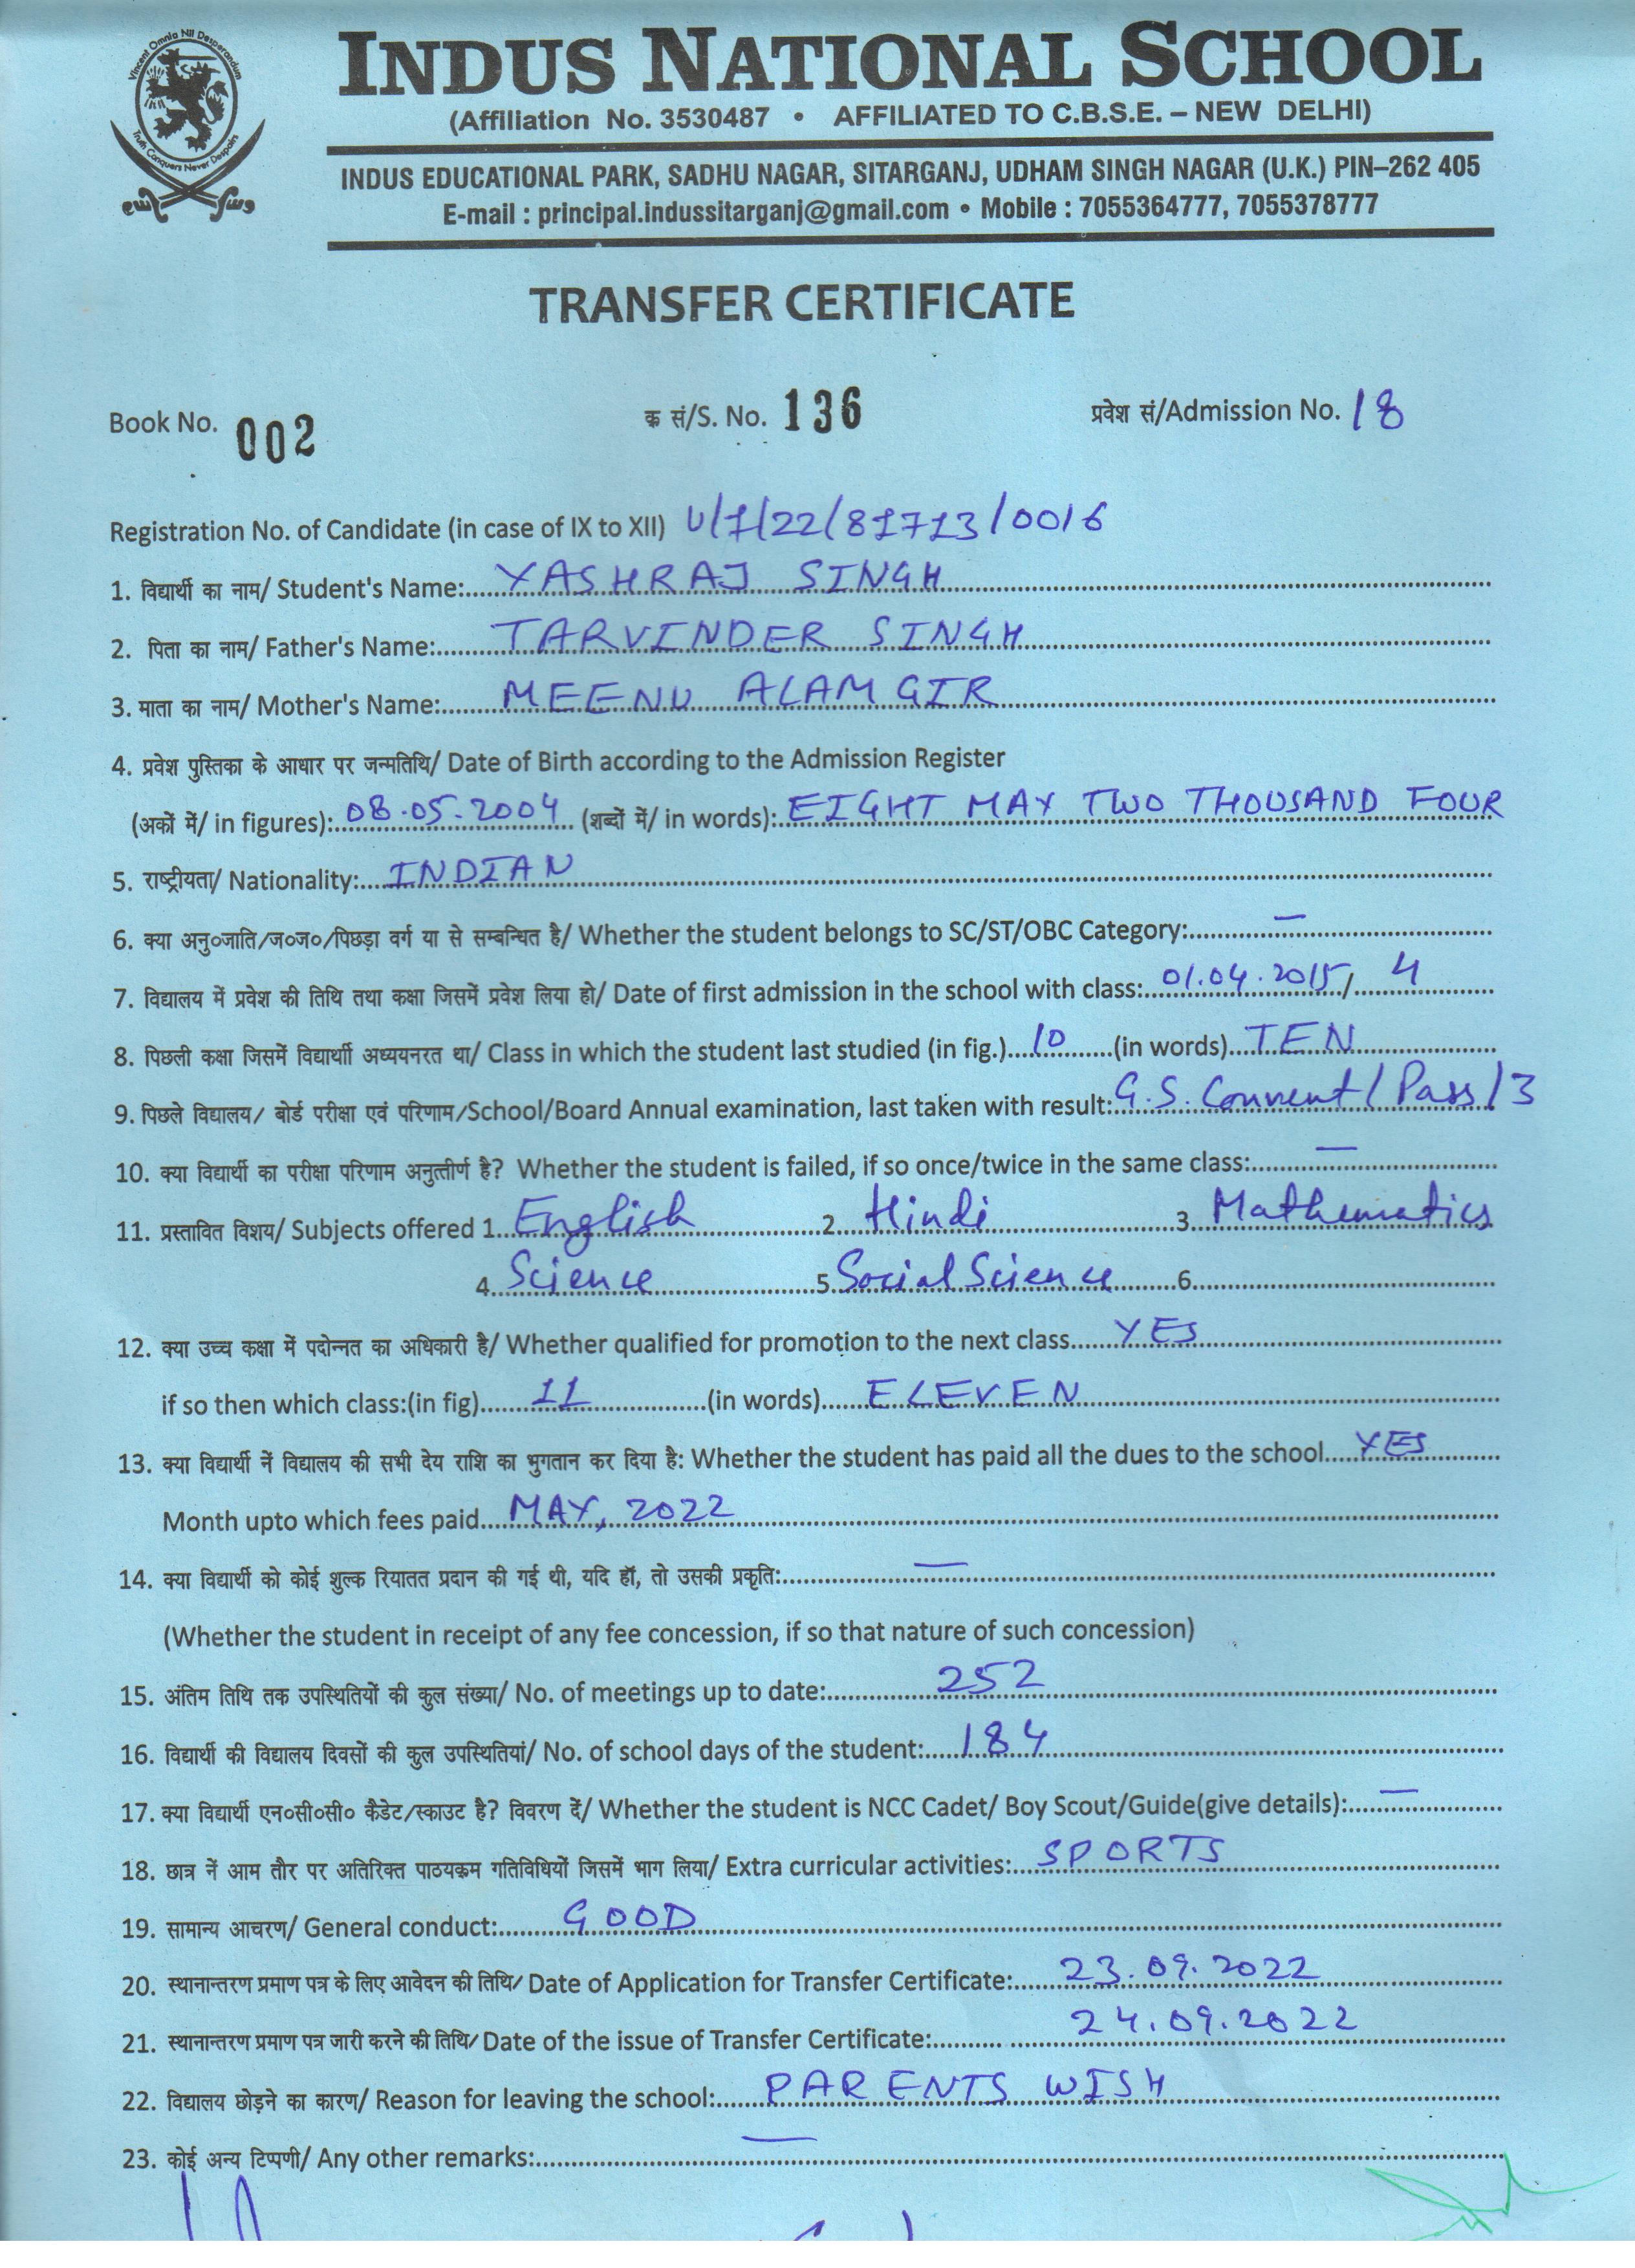 Vincent Omnia Nil Desperandum
Truth Conquers Never Despairs
INDUS NATIONAL SCHOOL
(Affiliation No. 3530487 • AFFILIATED TO C.B.S.E. – NEW DELHI)
INDUS EDUCATIONAL PARK, SADHU NAGAR, SITARGANJ, UDHAM SINGH NAGAR (U.K.) PIN–262 405
E-mail : principal.indussitarganj@gmail.com • Mobile : 7055364777, 7055378777
TRANSFER CERTIFICATE
Book No. 002 क्र सं/S. No. 136 प्रवेश सं/Admission No. 18
Registration No. of Candidate (in case of IX to XII) U/1/22/81713/0016
1. विद्यार्थी का नाम/ Student's Name: YASHRAJ SINGH
2. पिता का नाम/ Father's Name: TARVINDER SINGH
3. माता का नाम/ Mother's Name: MEENU ALAMGIR
4. प्रवेश पुस्तिका के आधार पर जन्मतिथि/ Date of Birth according to the Admission Register
(अकों में/ in figures): 08.05.2004 (शब्दों में/ in words): EIGHT MAY TWO THOUSAND FOUR
5. राष्ट्रीयता/ Nationality: INDIAN
6. क्या अनु०जाति/ज०ज०/पिछड़ा वर्ग या से सम्बन्धित है/ Whether the student belongs to SC/ST/OBC Category: —
7. विद्यालय में प्रवेश की तिथि तथा कक्षा जिसमें प्रवेश लिया हो/ Date of first admission in the school with class: 01.04.2015/ 4
8. पिछली कक्षा जिसमें विद्यार्थी अध्ययनरत था/ Class in which the student last studied (in fig.) 10 (in words) TEN
9. पिछले विद्यालय/ बोर्ड परीक्षा एवं परिणाम/School/Board Annual examination, last taken with result: G.S. Convent/Pass/3
10. क्या विद्यार्थी का परीक्षा परिणाम अनुत्तीर्ण है? Whether the student is failed, if so once/twice in the same class: —
11. प्रस्तावित विशय/ Subjects offered 1. English 2. Hindi 3. Mathematics
4. Science 5. Social Science 6.
12. क्या उच्च कक्षा में पदोन्नत का अधिकारी है/ Whether qualified for promotion to the next class YES
if so then which class:(in fig) 11 (in words) ELEVEN
13. क्या विद्यार्थी नें विद्यालय की सभी देय राशि का भुगतान कर दिया है: Whether the student has paid all the dues to the school YES
Month upto which fees paid MAY, 2022
14. क्या विद्यार्थी को कोई शुल्क रियातत प्रदान की गई थी, यदि हॉ, तो उसकी प्रकृति: —
(Whether the student in receipt of any fee concession, if so that nature of such concession)
15. अंतिम तिथि तक उपस्थितियों की कुल संख्या/ No. of meetings up to date: 252
16. विद्यार्थी की विद्यालय दिवसों की कुल उपस्थितियां/ No. of school days of the student: 184
17. क्या विद्यार्थी एन०सी०सी० कैडेट/स्काउट है? विवरण दें/ Whether the student is NCC Cadet/ Boy Scout/Guide(give details): —
18. छात्र नें आम तौर पर अतिरिक्त पाठयक्रम गतिविधियों जिसमें भाग लिया/ Extra curricular activities: SPORTS
19. सामान्य आचरण/ General conduct: GOOD
20. स्थानान्तरण प्रमाण पत्र के लिए आवेदन की तिथि/ Date of Application for Transfer Certificate: 23.09.2022
21. स्थानान्तरण प्रमाण पत्र जारी करने की तिथि/ Date of the issue of Transfer Certificate: 24.09.2022
22. विद्यालय छोड़ने का कारण/ Reason for leaving the school: PARENTS WISH
23. कोई अन्य टिप्पणी/ Any other remarks: —